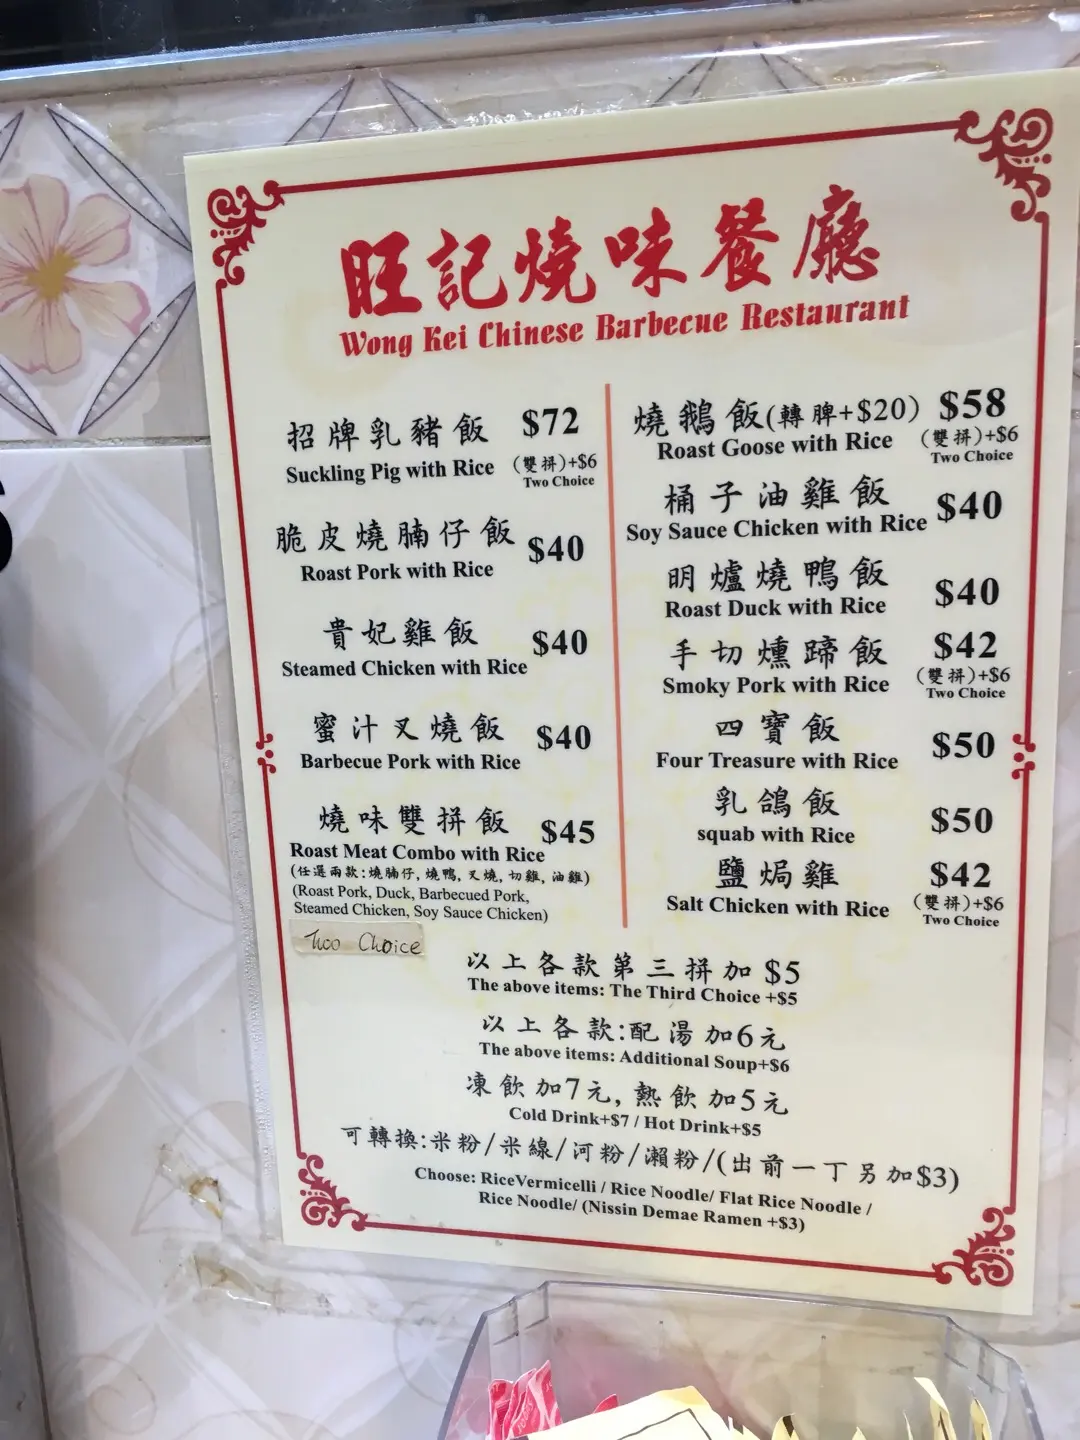 旺記燒味餐廳
Wong Kei Chinese Barbecue Restaurant
招牌乳豬飯 $72
Suckling Pig with Rice (雙拼)+$6
Two Choice
脆皮燒腩仔飯 $40
Roast Pork with Rice
貴妃雞飯 $40
Steamed Chicken with Rice
蜜汁叉燒飯 $40
Barbecue Pork with Rice
燒味雙拼飯 $45
Roast Meat Combo with Rice
(任選兩款:燒腩仔, 燒鴨, 叉燒, 切雞, 油雞)
(Roast Pork, Duck, Barbecued Pork,
Steamed Chicken, Soy Sauce Chicken)
Two Choice
燒鵝飯(轉脾+$20) $58
Roast Goose with Rice (雙拼)+$6
Two Choice
桶子油雞飯 $40
Soy Sauce Chicken with Rice
明爐燒鴨飯 $40
Roast Duck with Rice
手切燻蹄飯 $42
Smoky Pork with Rice (雙拼)+$6
Two Choice
四寶飯 $50
Four Treasure with Rice
乳鴿飯 $50
squab with Rice
鹽焗雞 $42
Salt Chicken with Rice (雙拼)+$6
Two Choice
以上各款第三拼加 $5
The above items: The Third Choice +$5
以上各款:配湯加6元
The above items: Additional Soup+$6
凍飲加7元, 熱飲加5元
Cold Drink+$7 / Hot Drink+$5
可轉換:米粉/米線/河粉/瀨粉/(出前一丁另加$3)
Choose: RiceVermicelli / Rice Noodle/ Flat Rice Noodle /
Rice Noodle/ (Nissin Demae Ramen +$3)